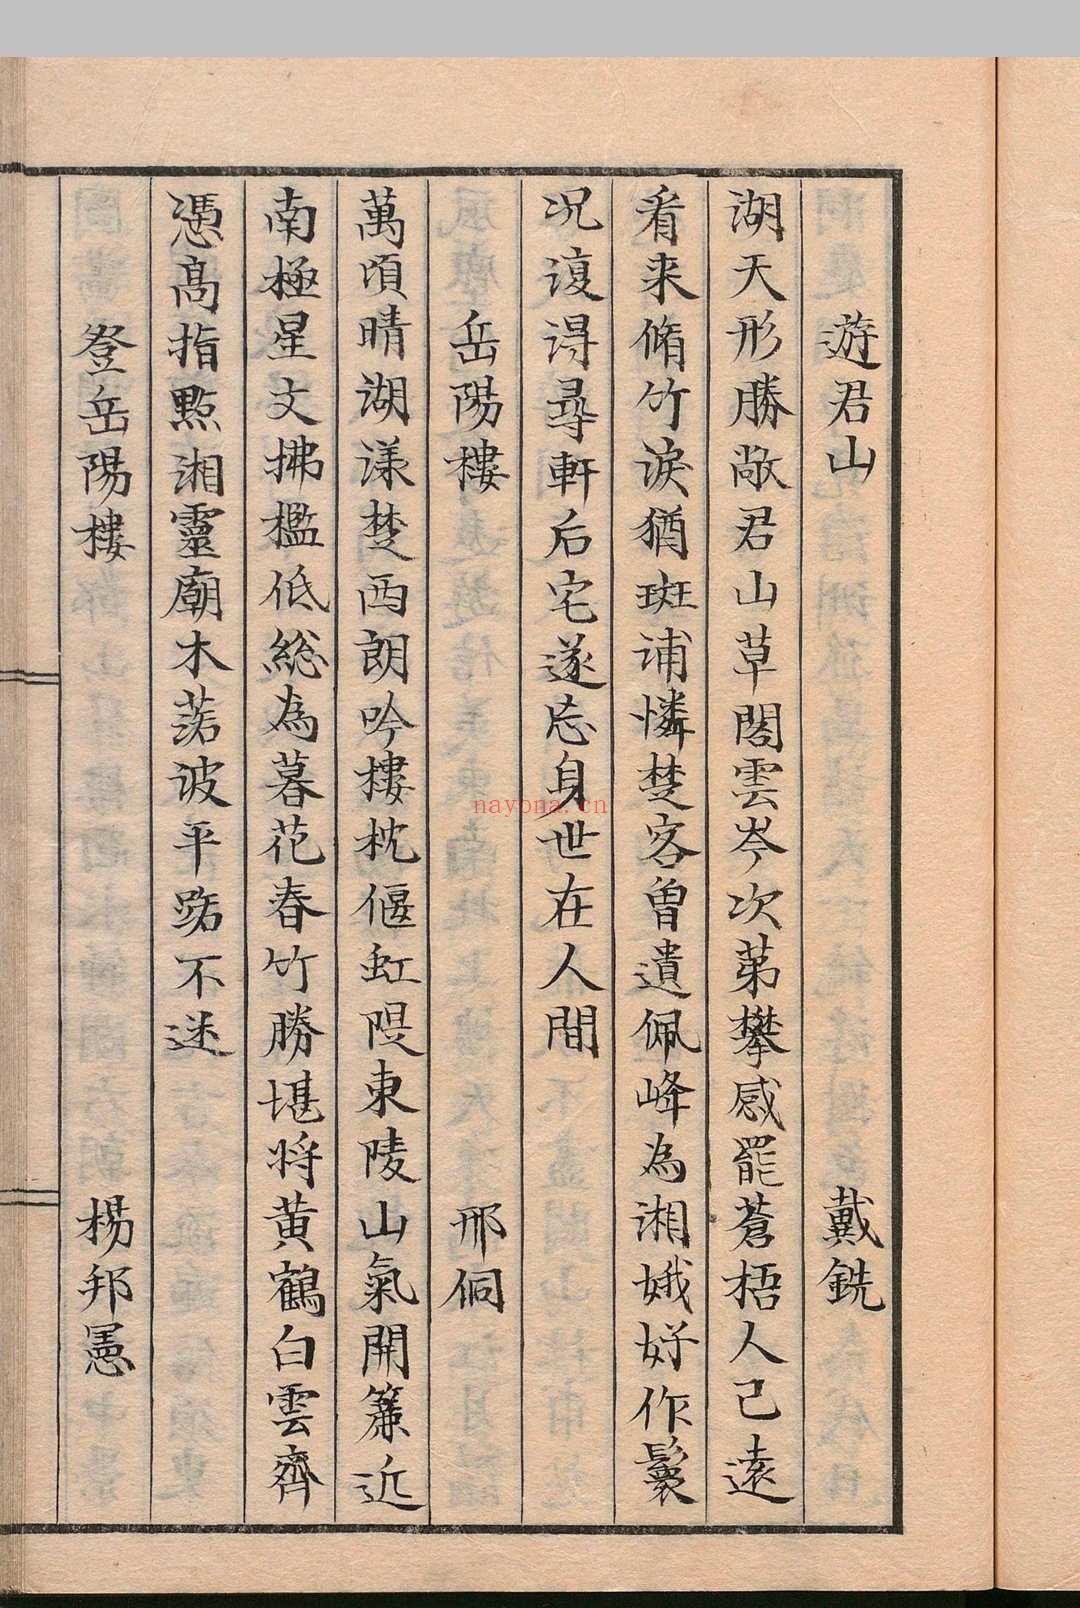 遊君山 戴銑
湖天形勝敞君山草閣雲岑次第攀感罷蒼梧人已遠
看来脩竹淚猶斑浦憐楚客曾遺佩峰為湘娥好作鬟
况復得尋軒后宅遂忘身世在人間
岳陽樓 邢侗
萬頃晴湖漾楚西朗吟樓枕偃虹隄東陵山氣開簾近
南極星文拂檻低総為暮花春竹勝堪将黄鶴白雲齊
憑高指點湘靈廟木落波平路不迷
登岳陽樓 楊邦憲
nayona.cn